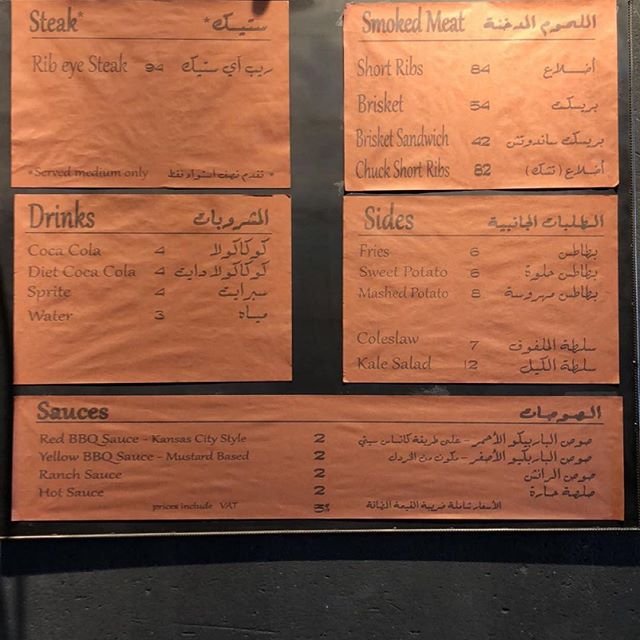 Steak* ستيك*
Rib eye Steak 94 ريب آي ستيك
*Served medium only * تقدم نصف استواء فقط
Smoked Meat اللحوم المدخنة
Short Ribs 84 أضلاع
Brisket 54 بريسكت
Brisket Sandwich 42 بريسكت ساندوتش
Chuck Short Ribs 82 أضلاع (تشك)
Drinks المشروبات
Coca Cola 4 كوكاكولا
Diet Coca Cola 4 كوكاكولا دايت
Sprite 4 سبرايت
Water 3 مياه
Sides الطلبات الجانبية
Fries 6 بطاطس
Sweet Potato 6 بطاطس حلوة
Mashed Potato 8 بطاطس مهروسة
Coleslaw 7 سلطة الملفوف
Kale Salad 12 سلطة الكيل
Sauces الصوصات
Red BBQ Sauce - Kansas City Style 2 صوص الباربيكو الأحمر - على طريقة كانساس سيتي
Yellow BBQ Sauce - Mustard Based 2 صوص الباربكيو الأصفر - مكون من الخردل
Ranch Sauce 2 صوص الرانش
Hot Sauce 2 صلصة حارة
prices include VAT الأسعار شاملة ضريبة القيمة المضافة